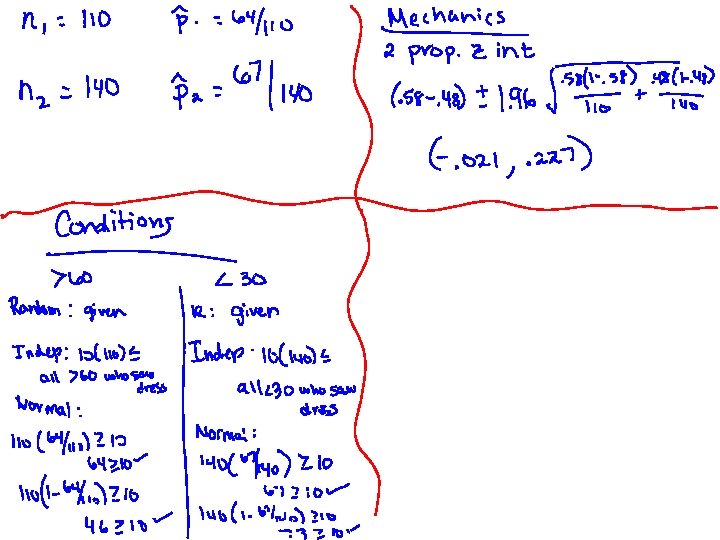 n₁ = 110 p̂₁ = 64/110
n₂ = 140 p̂₂ = 67/140
Mechanics
2 prop. Z int
(.58-.48) ± 1.96 √(.58(1-.58)/110 + .48(1-.48)/140)
(-.021, .227)
Conditions
>60
Random: given
Indep: 10(110) ≤
all >60 who saw
dress
Normal:
110(64/110) ≥ 10
64 ≥ 10 ✓
110(1-64/110) ≥ 10
46 ≥ 10 ✓
< 30
R: given
Indep: 10(140) ≤
all <30 who saw
dress
Normal:
140(67/140) ≥ 10
67 ≥ 10 ✓
140(1-67/140) ≥ 10
≥ 10 ✓